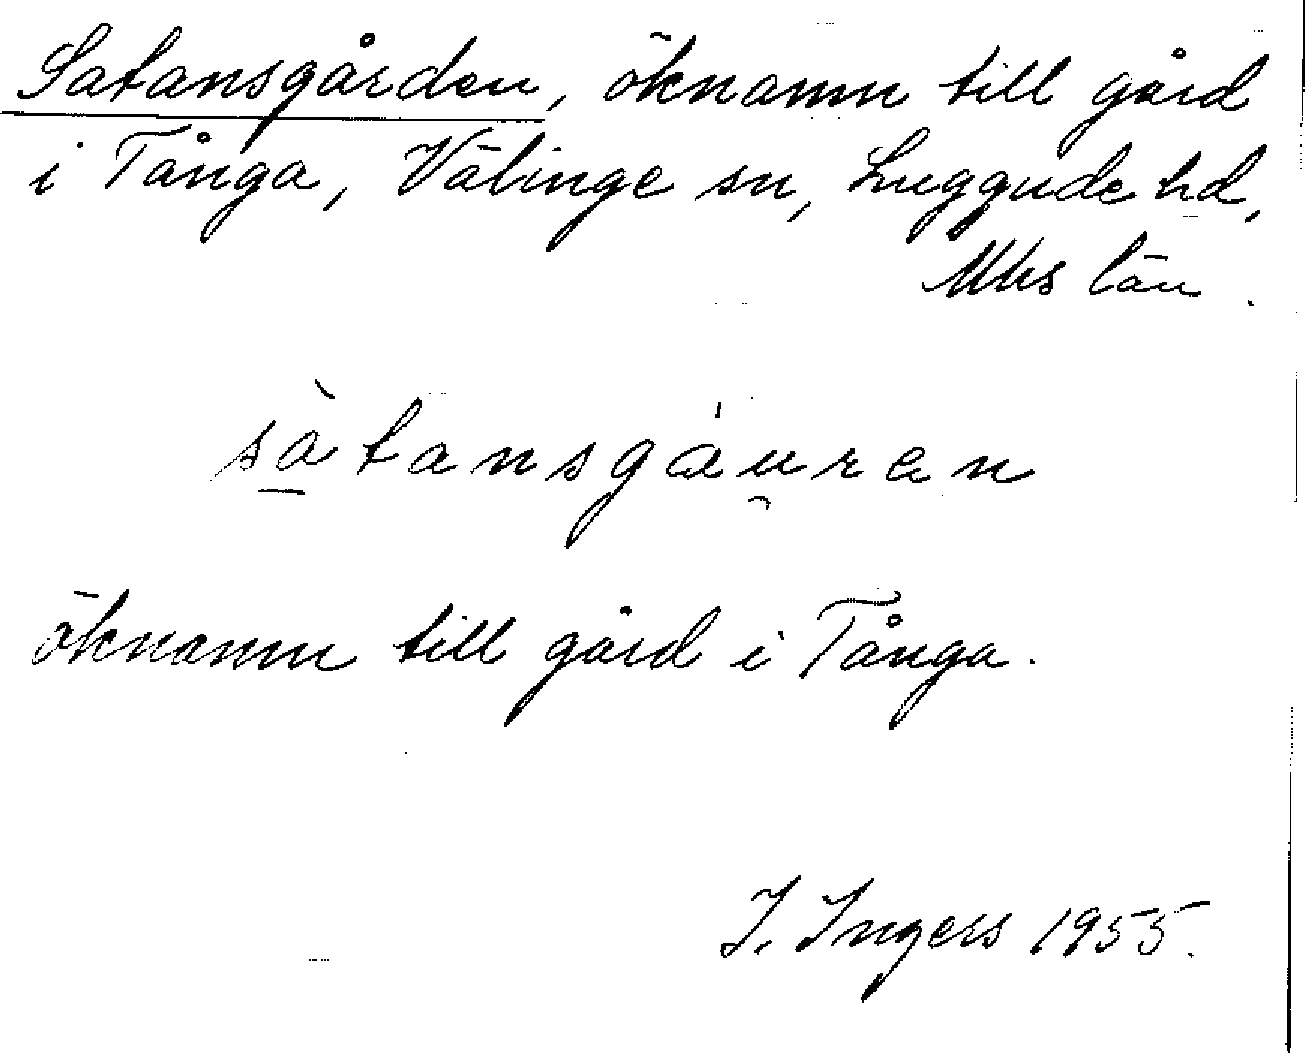 Satansgården, öknamn till gård
i Tånga, Välinge sn, Luggude hd,
Mhs län.
sàtansgáu̯ren
öknamn till gård i Tånga.
I. Ingers 1955.